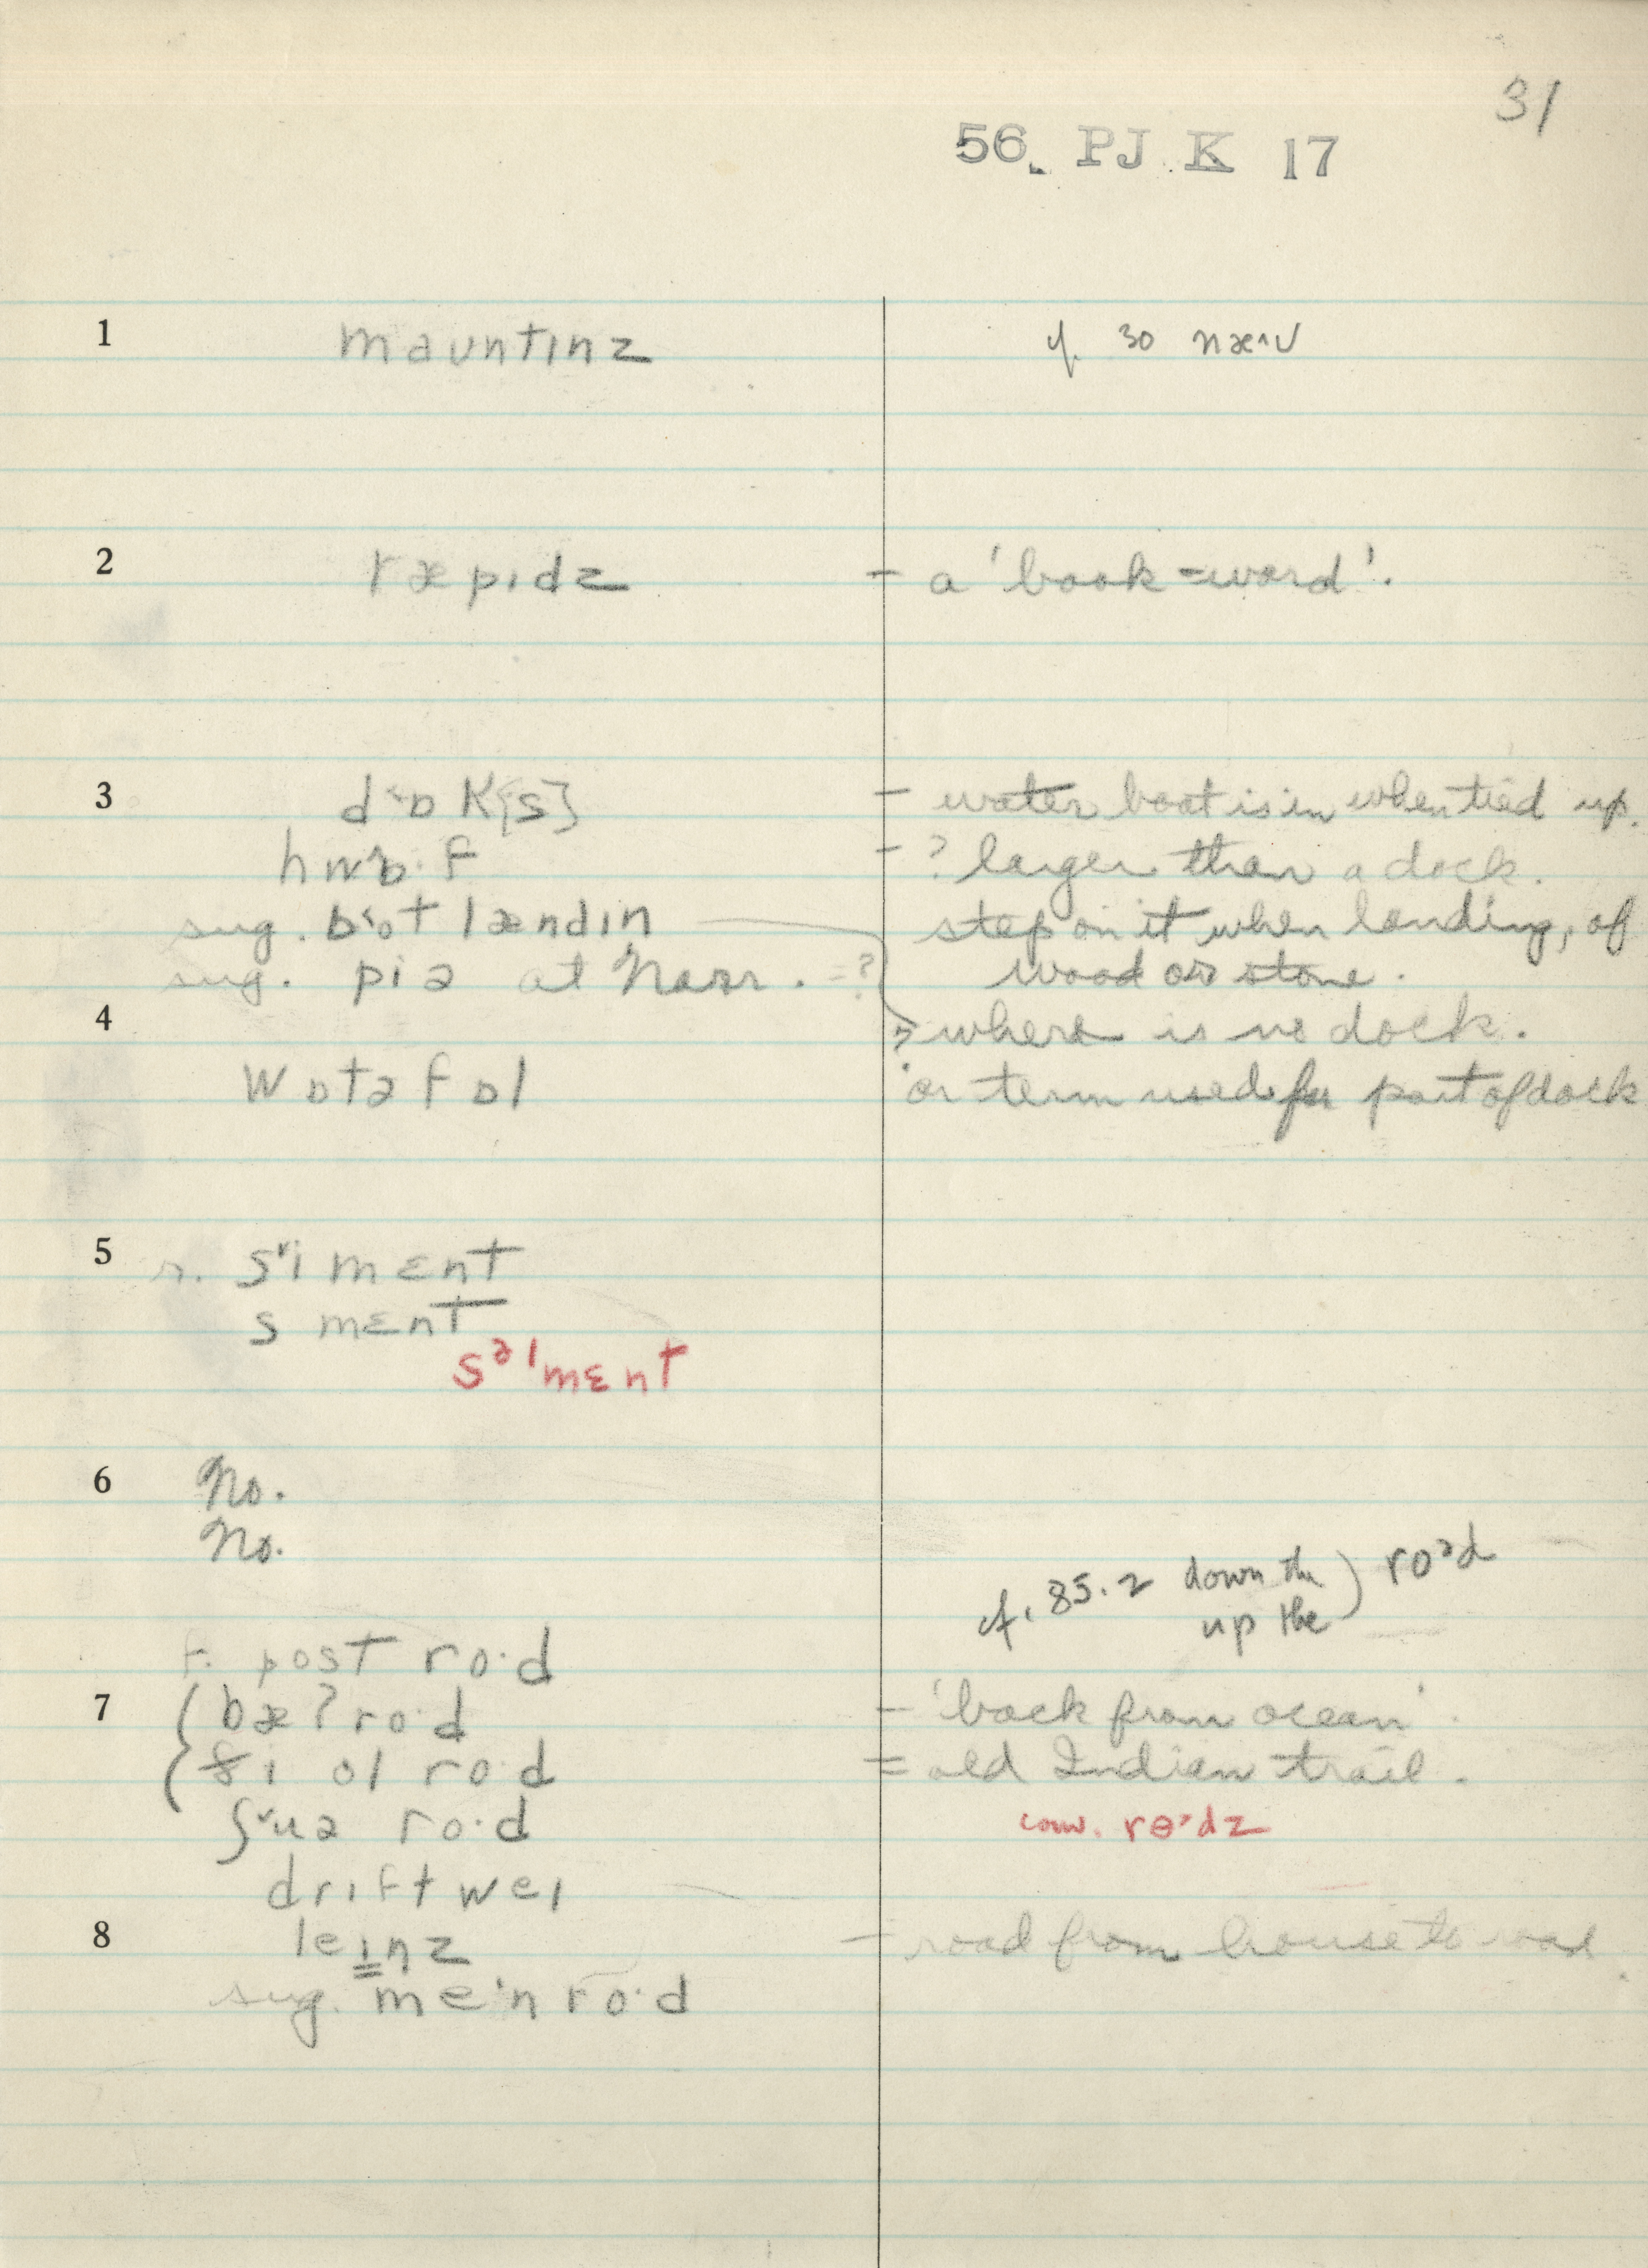 31
56. PJ K 17
1 maʊntɪnz cf. 30 næ^ʊ
2 ræpɪdz - a 'book=word'.
3 dˑɒk{s} - water boat is in when tied up.
hwɒ·f - ? larger than a dock.
sug. bˑot lændɪn step on it when landing, of
sug. piə at Narr. =? wood or stone.
4 where is no dock.
wɒtəfɒl or term used for part of dock
5 r. sᵛimɛnt
smɛnt
sᵊˈmɛnt
6 No.
No.
cf. 85.2 down the ) roᵊd
up the
f. post ro·d
7 bæʔ ro·d - 'back from ocean'.
ði ol ro·d = old Indian trail.
ʃᵛuə ro·d conv. rɵ·dz
drɪftweɪ
8 leɪnz - road from house to road
sug. meˑn ro·d